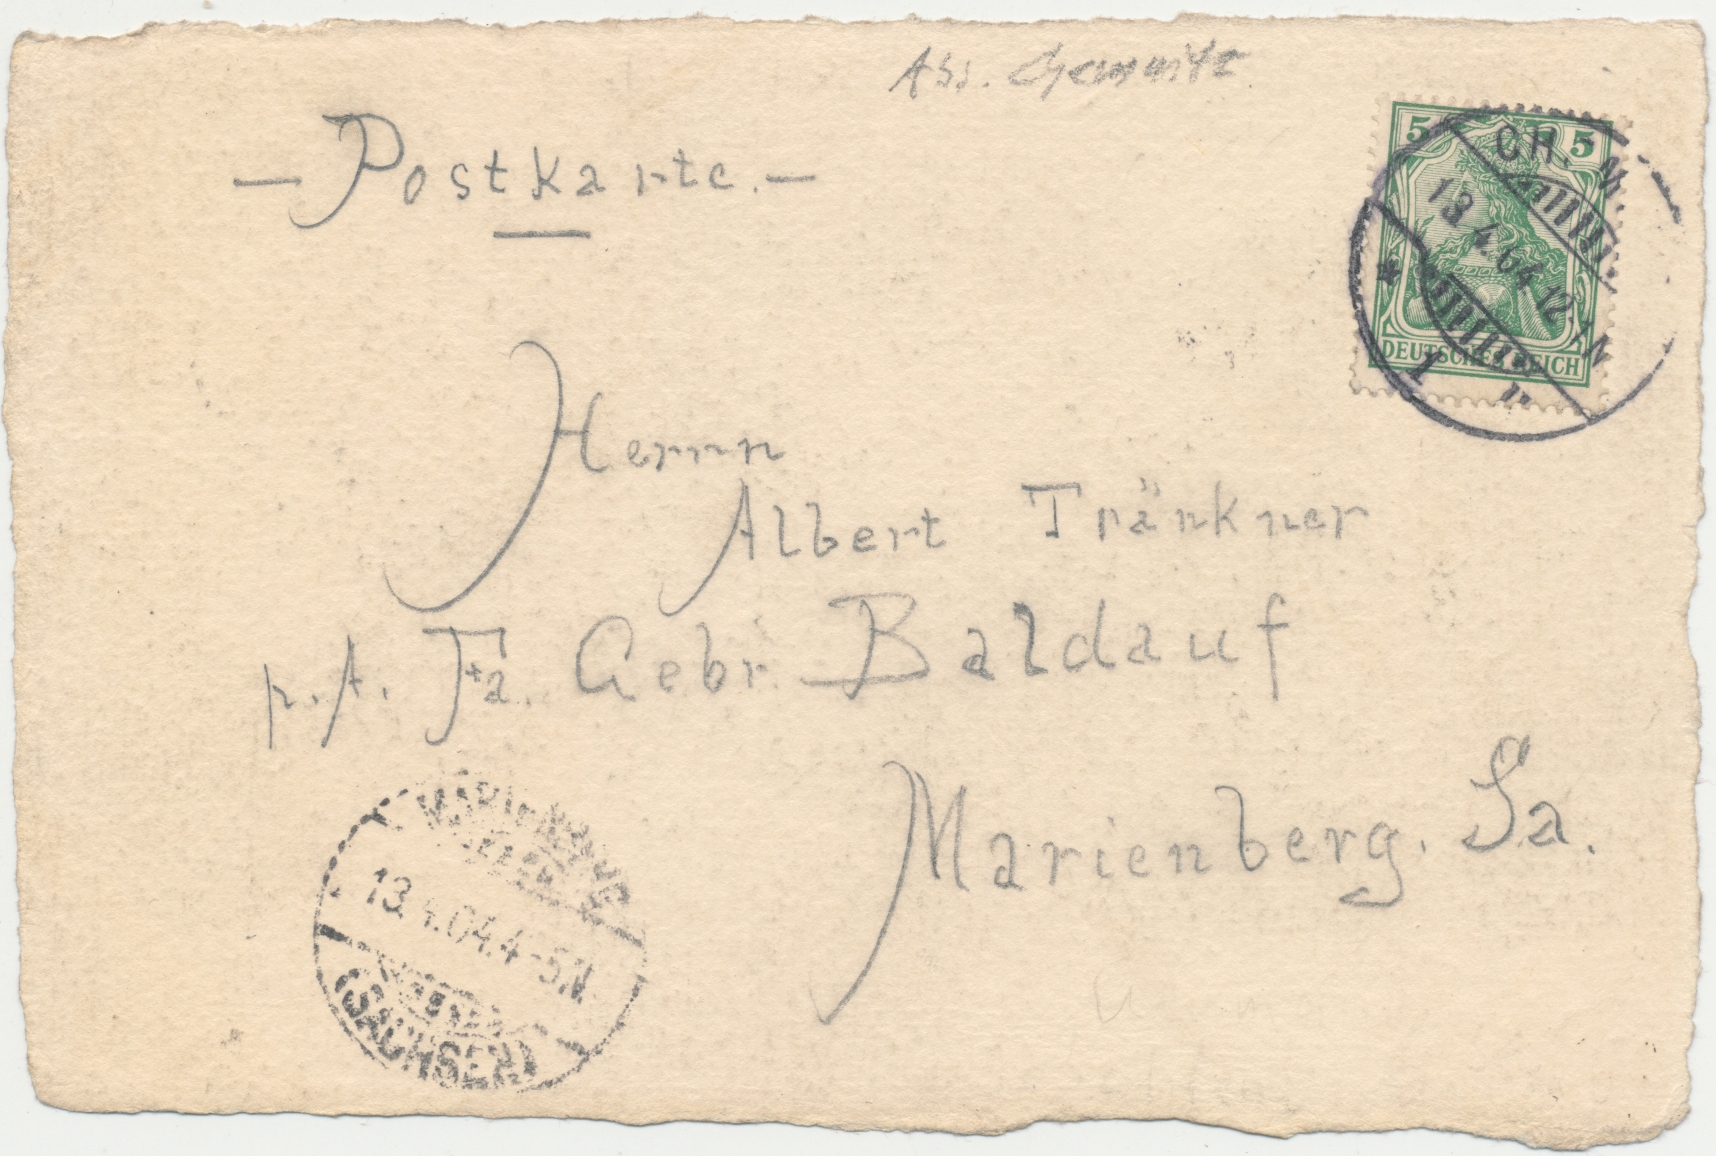 Abs. Chemnitz
— Postkarte. —
5 5
DEUTSCHES REICH
13.4.04.12-1N
1
Herrn
Albert Tränkner
p. A. Fa. Gebr. Baldauf
Marienberg. Sa.
MARIENBERG
13.4.04.4-5N.
(SACHSEN)